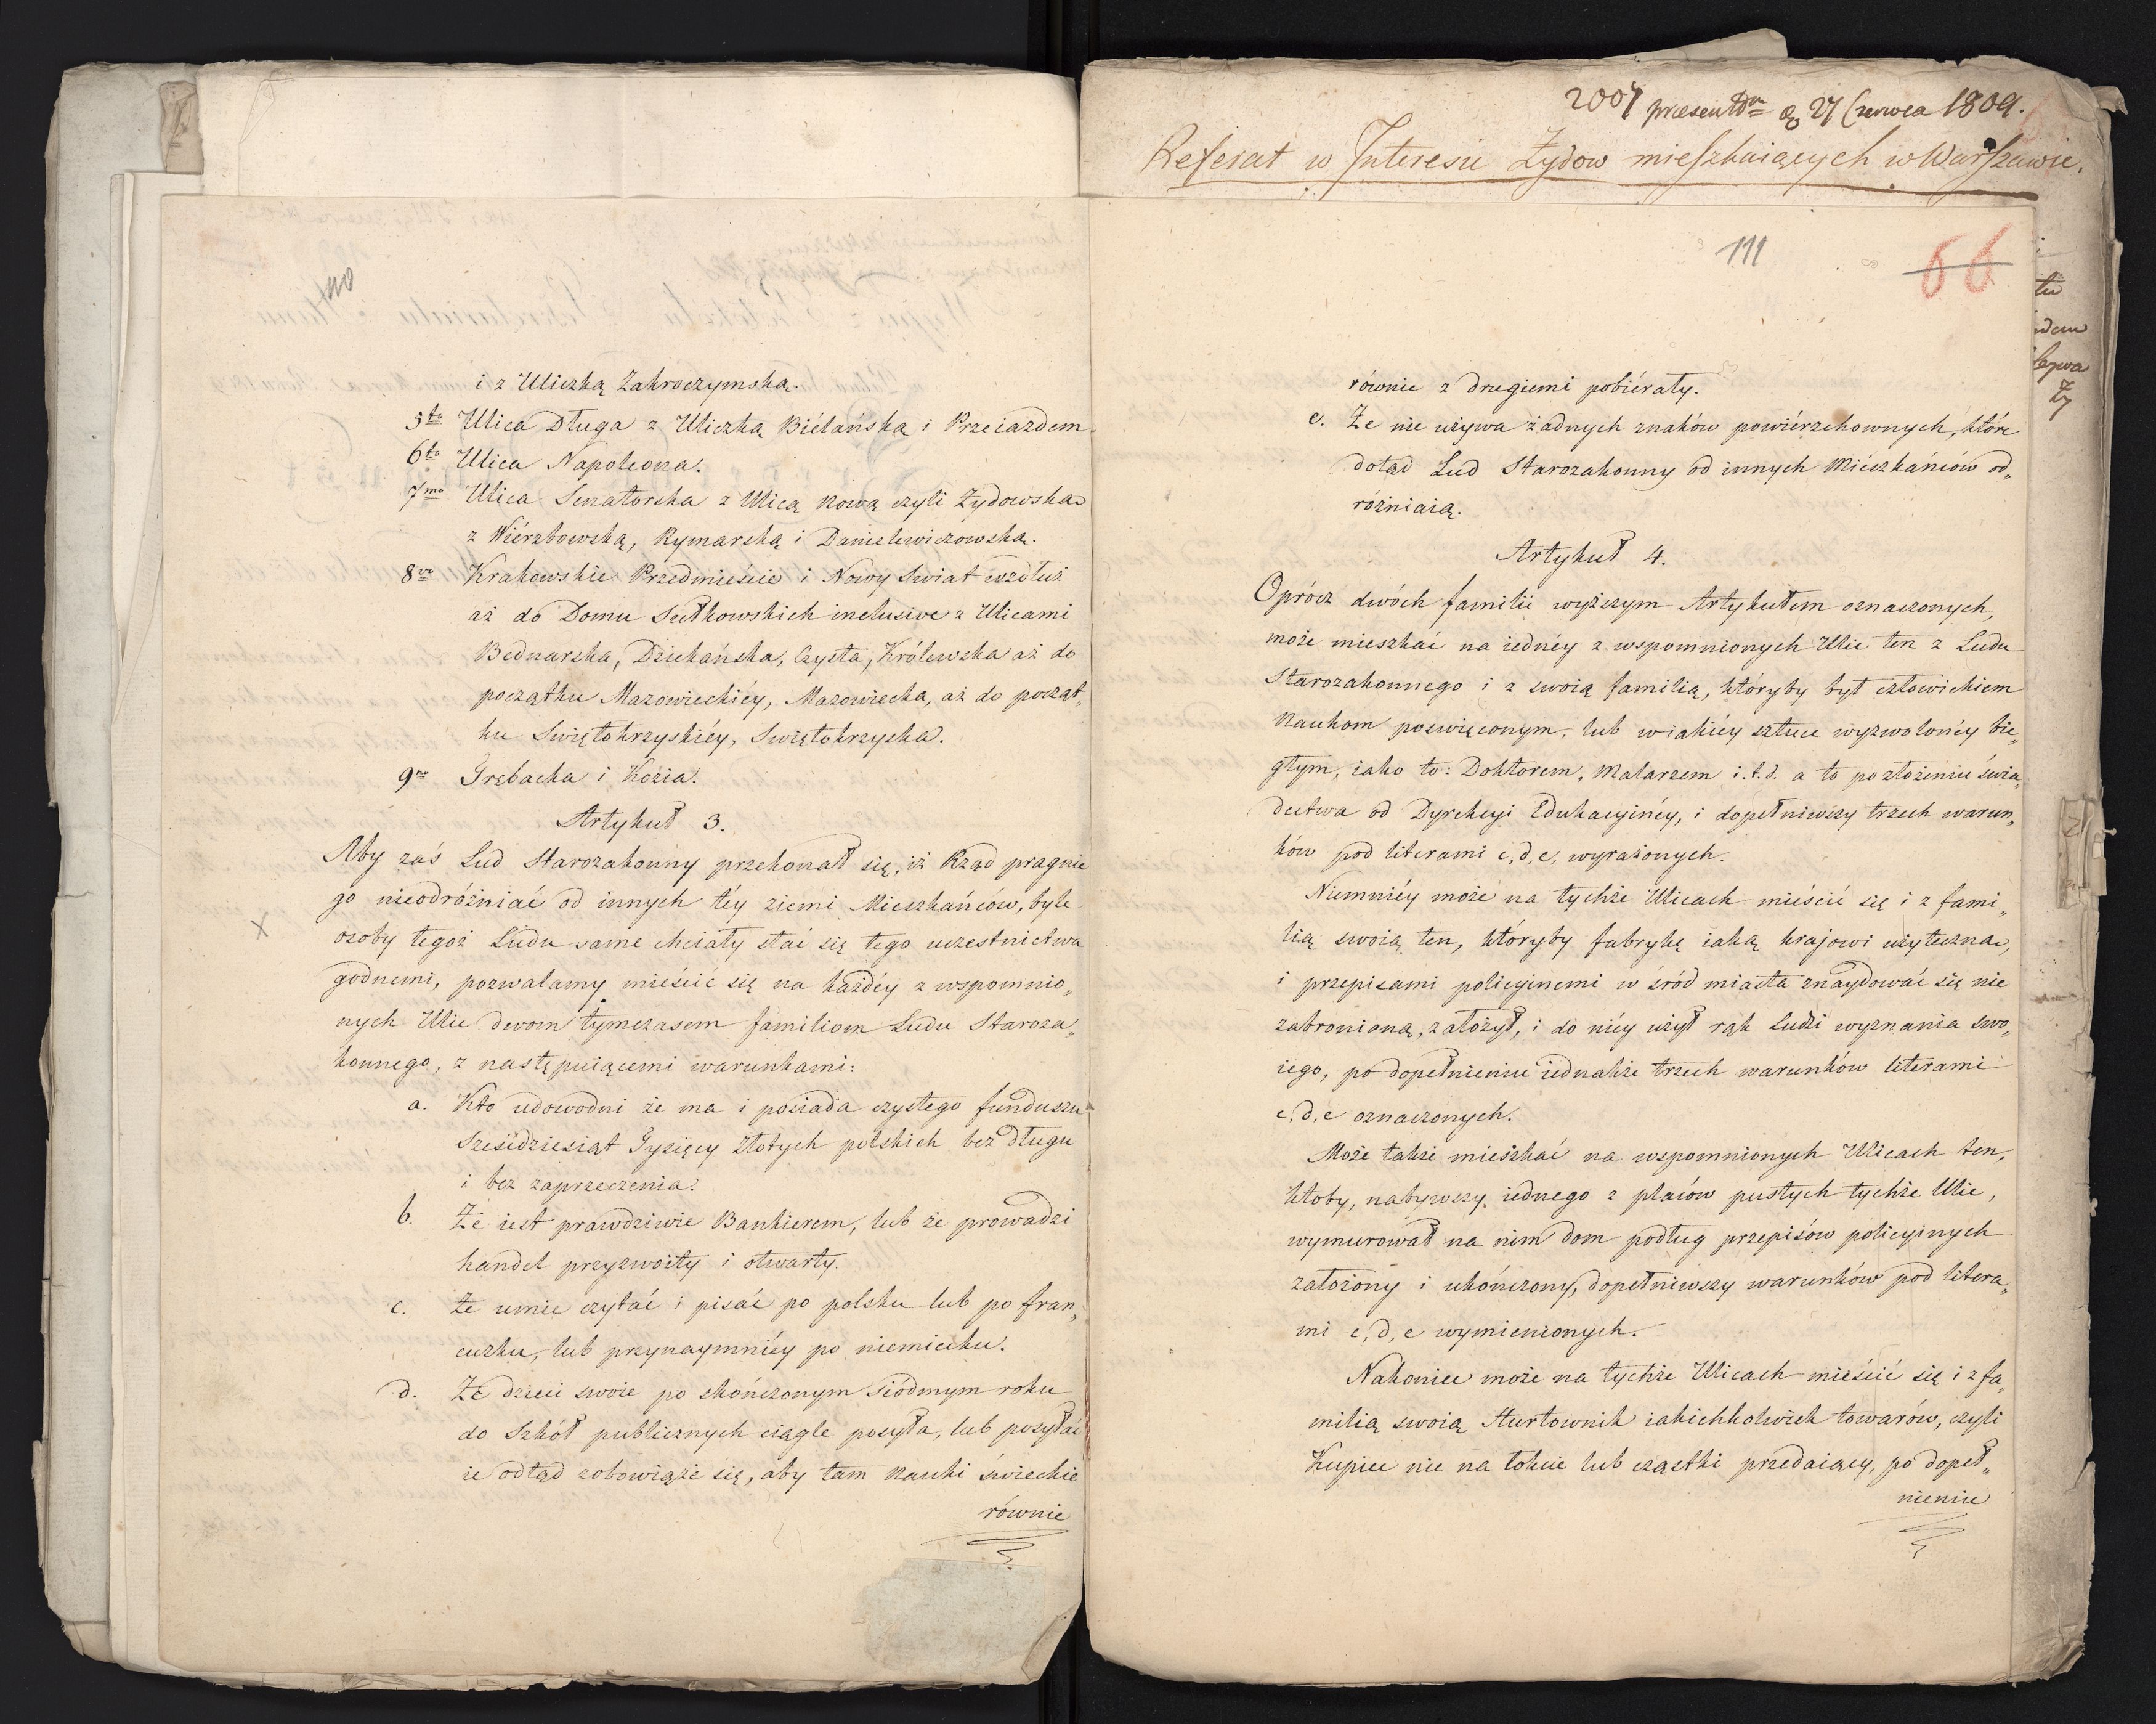 110
i z Uliczką Zakroczymską.
5to Ulica Długa z Uliczką Biélańską i Przeiazdem
6to Ulica Napoleona.
7mo Ulica Senatorska z Ulicą Nową czyli Żydowską
z Wiérzbowską, Rymarską i Danielewiczowską.
8vo Krakowskie Przedmieście i Nowy Swiat wzdłuż
aż do Domu Sułkowskich inclusive z Ulicami
Bednarska, Dziekańska, Czysta, Królewska aż do
początku Mazowieckiéy, Mazowiecka, aż do począt„
ku Swiętokrzyskiéy, Swiętokrzyska.
9no Trębacka i Kozia.
Artykuł 3.
Aby zaś Lud Starozakonny przekonał się, iż Rząd pragnie
go nieodróżniać od innych téy ziemi Mieszkańców, byle
osoby tegoż Ludu same chciały stać się tego uczestnictwa
godnemi, pozwalamy mieścić się na każdéy z wspomnio„
nych Ulic dwom tymczasem familiom Ludu Staroza„
konnego, z następuiącemi warunkami:
a. Kto udowodni że ma i posiada czystego funduszu
Sześćdziesiąt Tysięcy Złotych polskich bez długu
i bez zaprzeczenia.
b. Że iest prawdziwie Bankierem, lub że prowadzi
handel przyzwoity i otwarty.
c. Że umie czytać i pisać po polsku lub po fran„
cuzku, lub przynaymniéy po niemiecku.
d. Że dzieci swoie po skończonym siódmym roku
do Szkół publicznych ciągle posyła, lub posyłać
ie odtąd zobowiąże się, aby tam nauki świeckie
równie
2007 praesentm d. 27 Czerwca 1809.
Referat w Interesie Żydow mieszkaiących w Warszawie.
111
66
równie z drugiemi pobiérały.
e. Że nie używa żadnych znaków powiérzchownych, które
dotąd Lud Starozakonny od innych Miészkańców od„
różniaią.
Artykuł 4.
Oprócz dwóch familii wyższym Artykułem oznaczonych,
może mieszkać na iednéy z wspomnionych Ulic ten z Ludu
Starozakonnego i z swoią familią, któryby był człowiekiem
Naukom poswięconym, lub w iakiéy sztuce wyzwolonéy bie„
głym, iako to: Doktorem, Malarzem i.t.d. a to po złożeniu świa„
dectwa od Dyrekcyi Edukacyinéy, i dopełniwszy trzech warun„
ków pod literami c, d, e, wyrażonych.
Niemniéy może na tychże Ulicach mieścić się i z fami„
lią swoią ten, któryby fabrykę iaką krajowi użyteczną,
i przepisami policyinemi w śród miasta znaydować się nie
zabronioną, założył, i do niéy użył rąk Ludzi wyznania swo„
iego, po dopełnieniu iednakże trzech warunków literami
c, d, e oznaczonych.
Może także mieszkać na wspomnionych Ulicach ten,
ktoby, nabywszy iednego z placów pustych tychże Ulic,
wymurował na nim dom podług przepisów policyinych
założony i ukończony, dopełniwszy warunków pod litera„
mi c, d, e wymienionych.
Nakoniec może na tychże Ulicach mieścić się i z fa„
milią swoią Hurtownik iakichkolwiek towarów, czyli
Kupiec nie na łokcie lub cząstki przedaiący, po dopeł„
nieniu